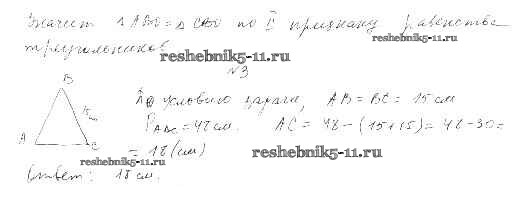 Значит △ АВО = △ СВО по I признаку равенства
треугольников
reshebnik5-11.ru
reshebnik5-11.ru
N3
B
15 см
A
C
По условию задачи, AB = BC = 15 см
P ABC = 48 см. AC = 48 - (15 + 15) = 48 - 30 =
= 18 (см)
reshebnik5-11.ru
reshebnik5-11.ru
Ответ: 18 см.